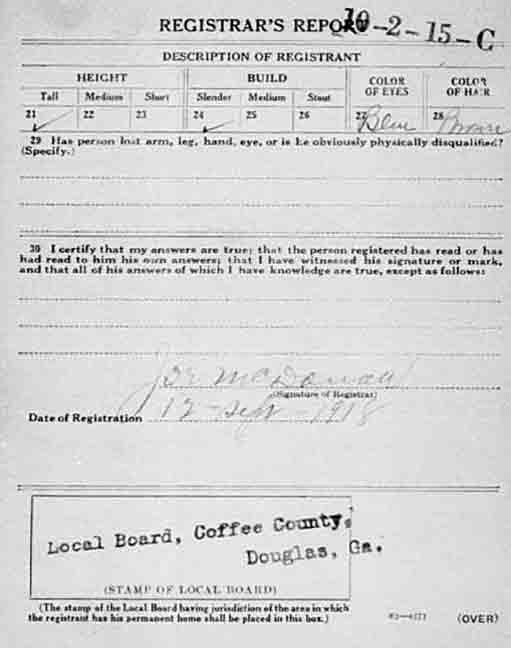 REGISTRAR'S REPORT 10-2-15-C
DESCRIPTION OF REGISTRANT
HEIGHT BUILD COLOR OF EYES COLOR OF HAIR
Tall Medium Short Slender Medium Stout
21 ✓ 22 23 24 ✓ 25 26 27 Blue 28
29 Has person lost arm, leg, hand, eye, or is he obviously physically disqualified?
(Specify.)
30 I certify that my answers are true; that the person registered has read or has
had read to him his own answers; that I have witnessed his signature or mark,
and that all of his answers of which I have knowledge are true, except as follows:
McDonald
(Signature of Registrar)
Date of Registration 12 - Sept - 1918
Local Board, Coffee County,
Douglas, Ga.
(STAMP OF LOCAL BOARD)
(The stamp of the Local Board having jurisdiction of the area in which
the registrant has his permanent home shall be placed in this box.)
(OVER)